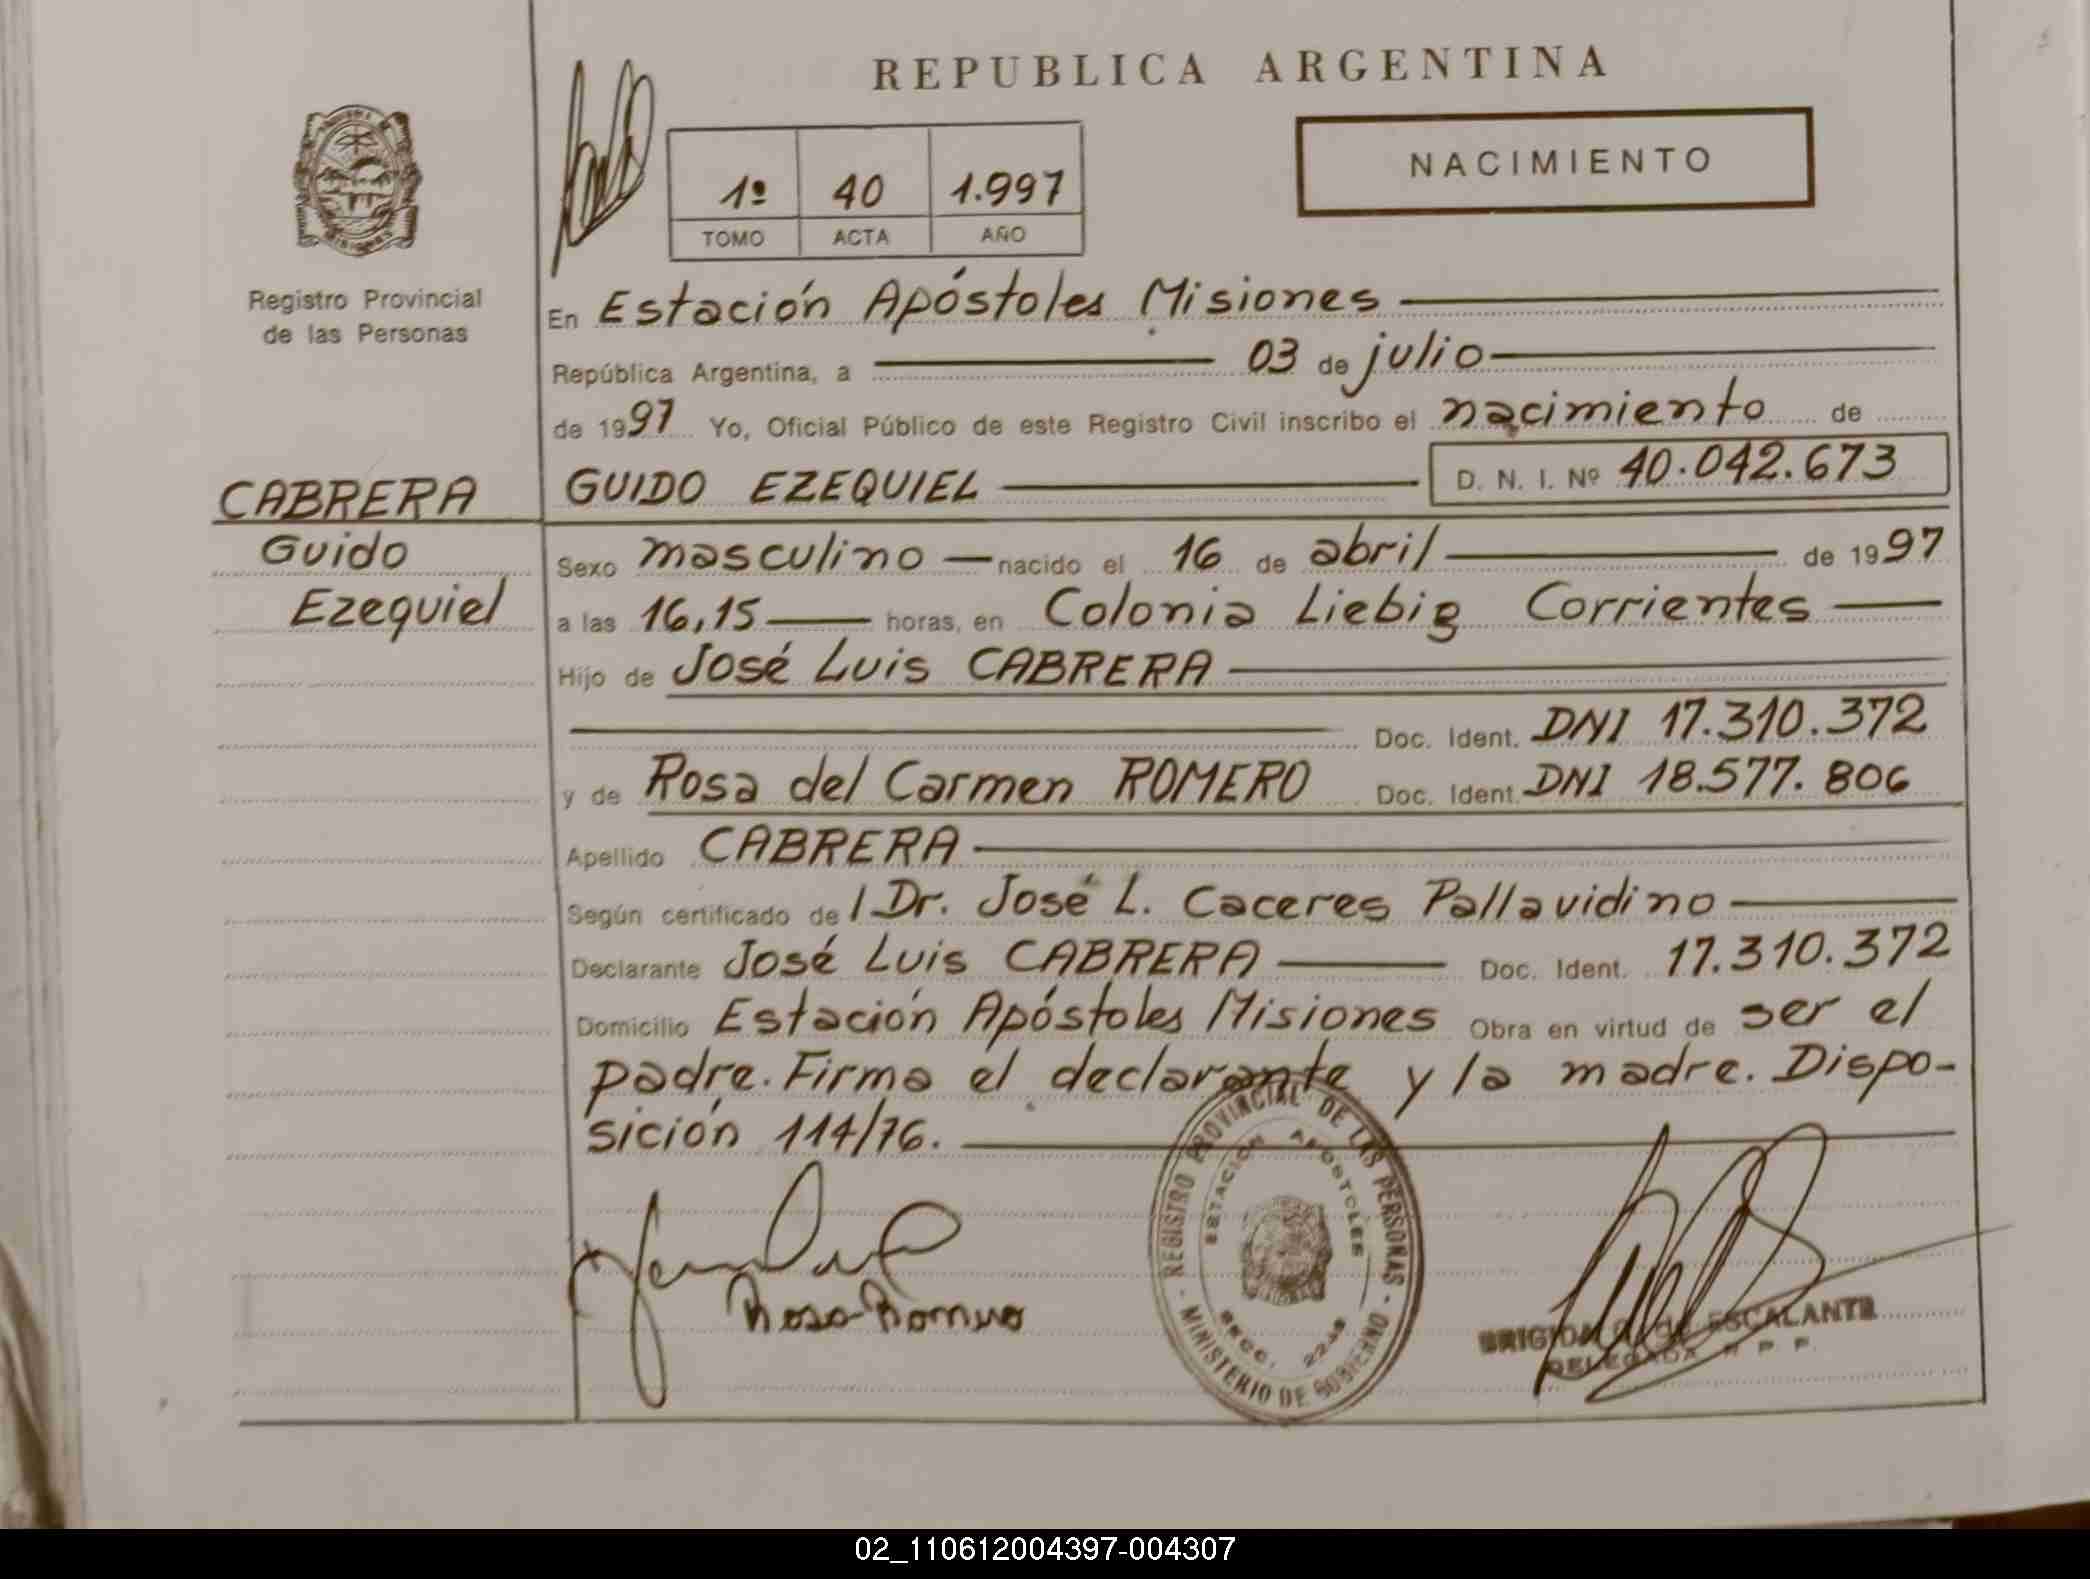 REPUBLICA ARGENTINA
NACIMIENTO
1º 40 1.997
TOMO ACTA AÑO
Registro Provincial
de las Personas
En Estación Apóstoles Misiones
República Argentina, a 03 de julio
de 1997 Yo, Oficial Público de este Registro Civil inscribo el nacimiento de
CABRERA
Guido
Ezequiel
GUIDO EZEQUIEL D. N. I. Nº 40.042.673
Sexo masculino nacido el 16 de abril de 1997
a las 16,15 horas, en Colonia Liebig Corrientes
Hijo de José Luis CABRERA
Doc. Ident. DNI 17.310.372
y de Rosa del Carmen ROMERO Doc. Ident. DNI 18.577.806
Apellido CABRERA
Según certificado de l Dr. José L. Caceres Pallavidino
Declarante José Luis CABRERA Doc. Ident. 17.310.372
Domicilio Estación Apóstoles Misiones Obra en virtud de ser el
padre. Firma el declarante y la madre. Dispo-
sición 114/76.
REGISTRO PROVINCIAL DE LAS PERSONAS
ESTACION APOSTOLES
SECC.
MINISTERIO DE GOBIERNO
Rosa Romero
BRIGIDA ESCALANTE
DELEGADA R P P.
02_110612004397-004307